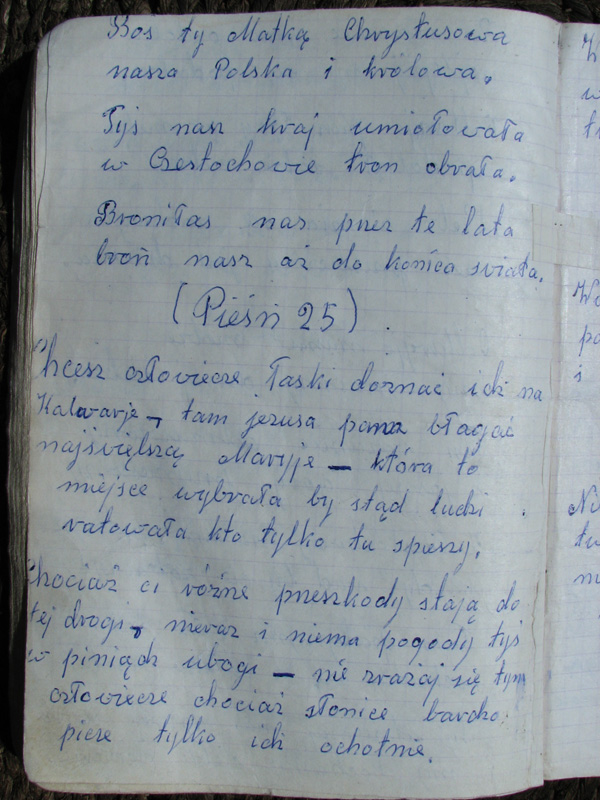 Boś ty Matką Chrystusowa
nasza Polska i królowa.
Tyś nasz kraj umiołowała
w Czestochowie tron obrała.
Broniłas nas przez te lata
broń nasz aż do końca sviata.
(Pieśń 25)
Chcesz człoviecze łaski doznać idź na
Kalwarje, tam jezusa pana błagać
najświęlszą Maryje – która to
miejsce wybrała by stąd ludzi
ratowała kto tylko tu spieszy.
Chociaż ci różne przeszkody stają do
tej drogi, nieraz i niema pogody tyś
w piniądz ubogi – nie zvażaj się tym
człoviecze chociaż słonice bardzo
piecze tylko idź ochotnie.